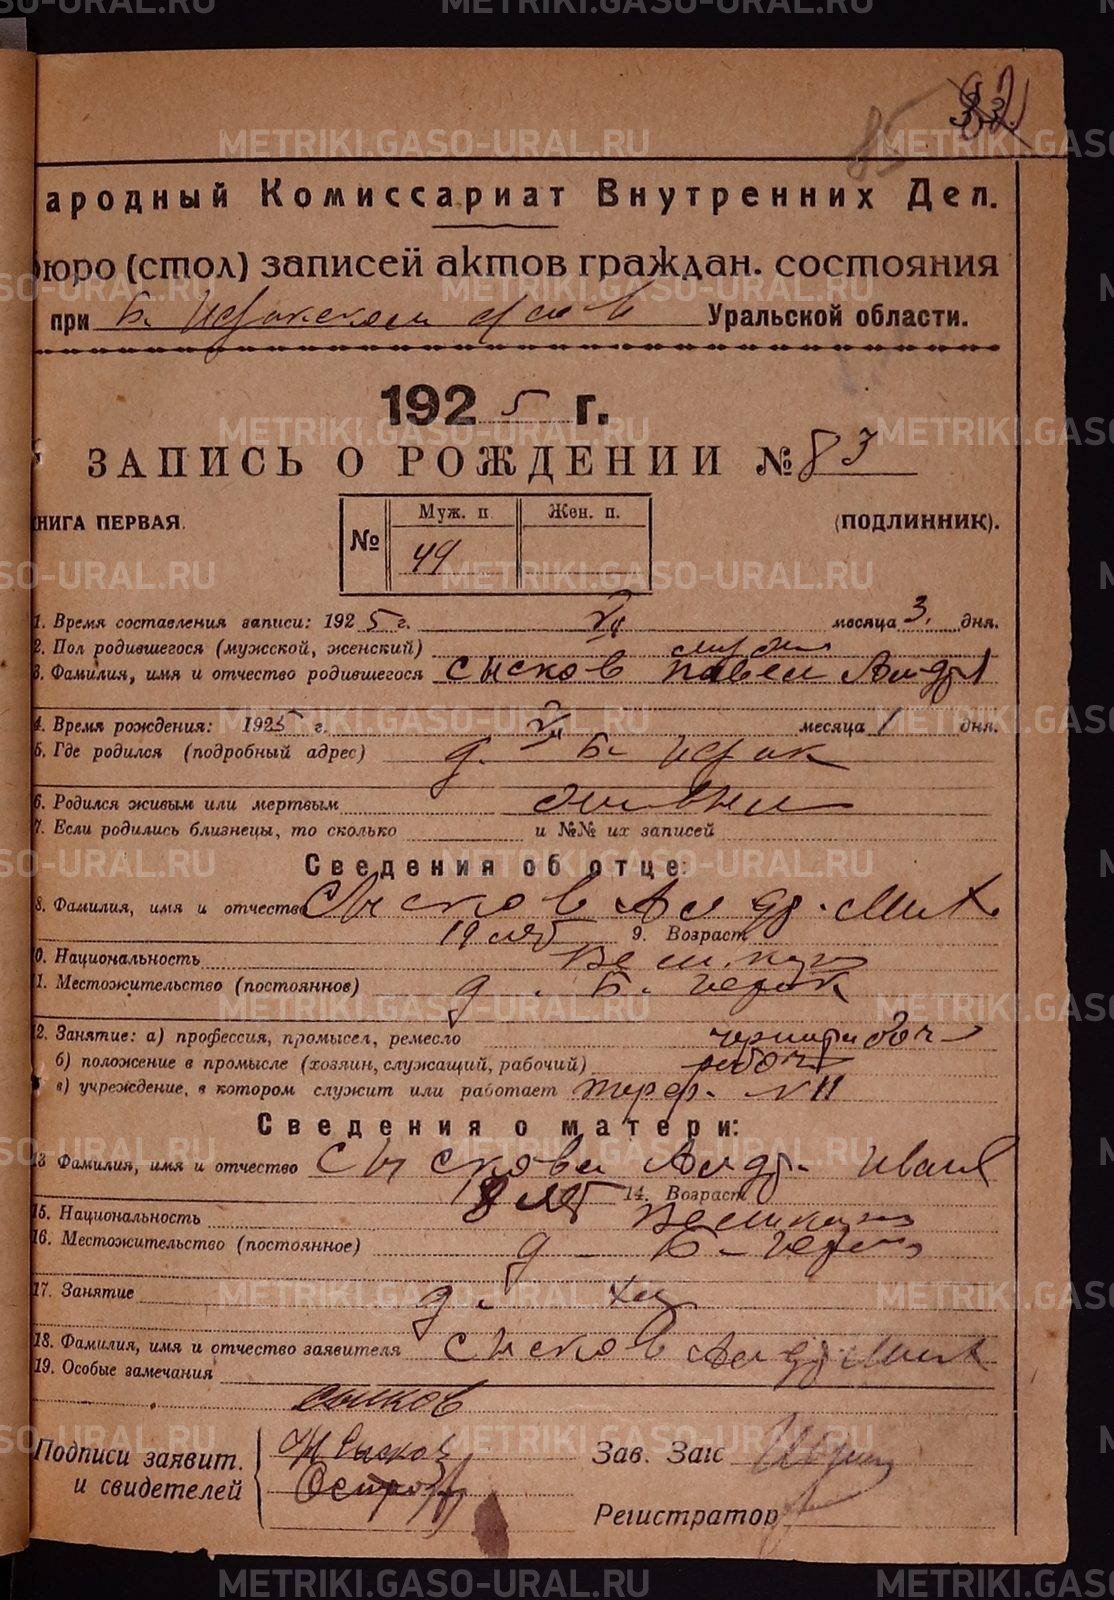 85
ародный Комиссариат Внутренних Дел.
бюро (стол) записей актов граждан. состояния
при Б. Уральской области.
1925 г.
ЗАПИСЬ О РОЖДЕНИИ № 83
НИГА ПЕРВАЯ. (ПОДЛИННИК).
№ Муж. п. Жен. п.
49
1. Время составления записи: 1925 г. VII месяца 3. дня.
2. Пол родившегося (мужской, женский)
3. Фамилия, имя и отчество родившегося Сысков Павел Алдр
4. Время рождения: 1925 г. VII месяца 1 дня.
5. Где родился (подробный адрес) д. Б. Исток
6. Родился живым или мертвым живым
7. Если родились близнецы, то сколько и №№ их записей
Сведения об отце:
8. Фамилия, имя и отчество Сысков Алдр. Мих
19 лет 9. Возраст
0. Национальность
1. Местожительство (постоянное) д. Б. Исток
12. Занятие: а) профессия, промысел, ремесло
б) положение в промысле (хозяин, служащий, рабочий) рабоч
в) учреждение, в котором служит или работает торф. №11
Сведения о матери:
13 Фамилия, имя и отчество Сыскова Алдр. Иван
лет 14. Возраст
15. Национальность
16. Местожительство (постоянное) д. Б. Исток
17. Занятие д. хоз
18. Фамилия, имя и отчество заявителя Сысков Алдр Мих
19. Особые замечания
Подписи заявит. и свидетелей Зав. Загс
Регистратор
METRIKI.GASO-URAL.RU